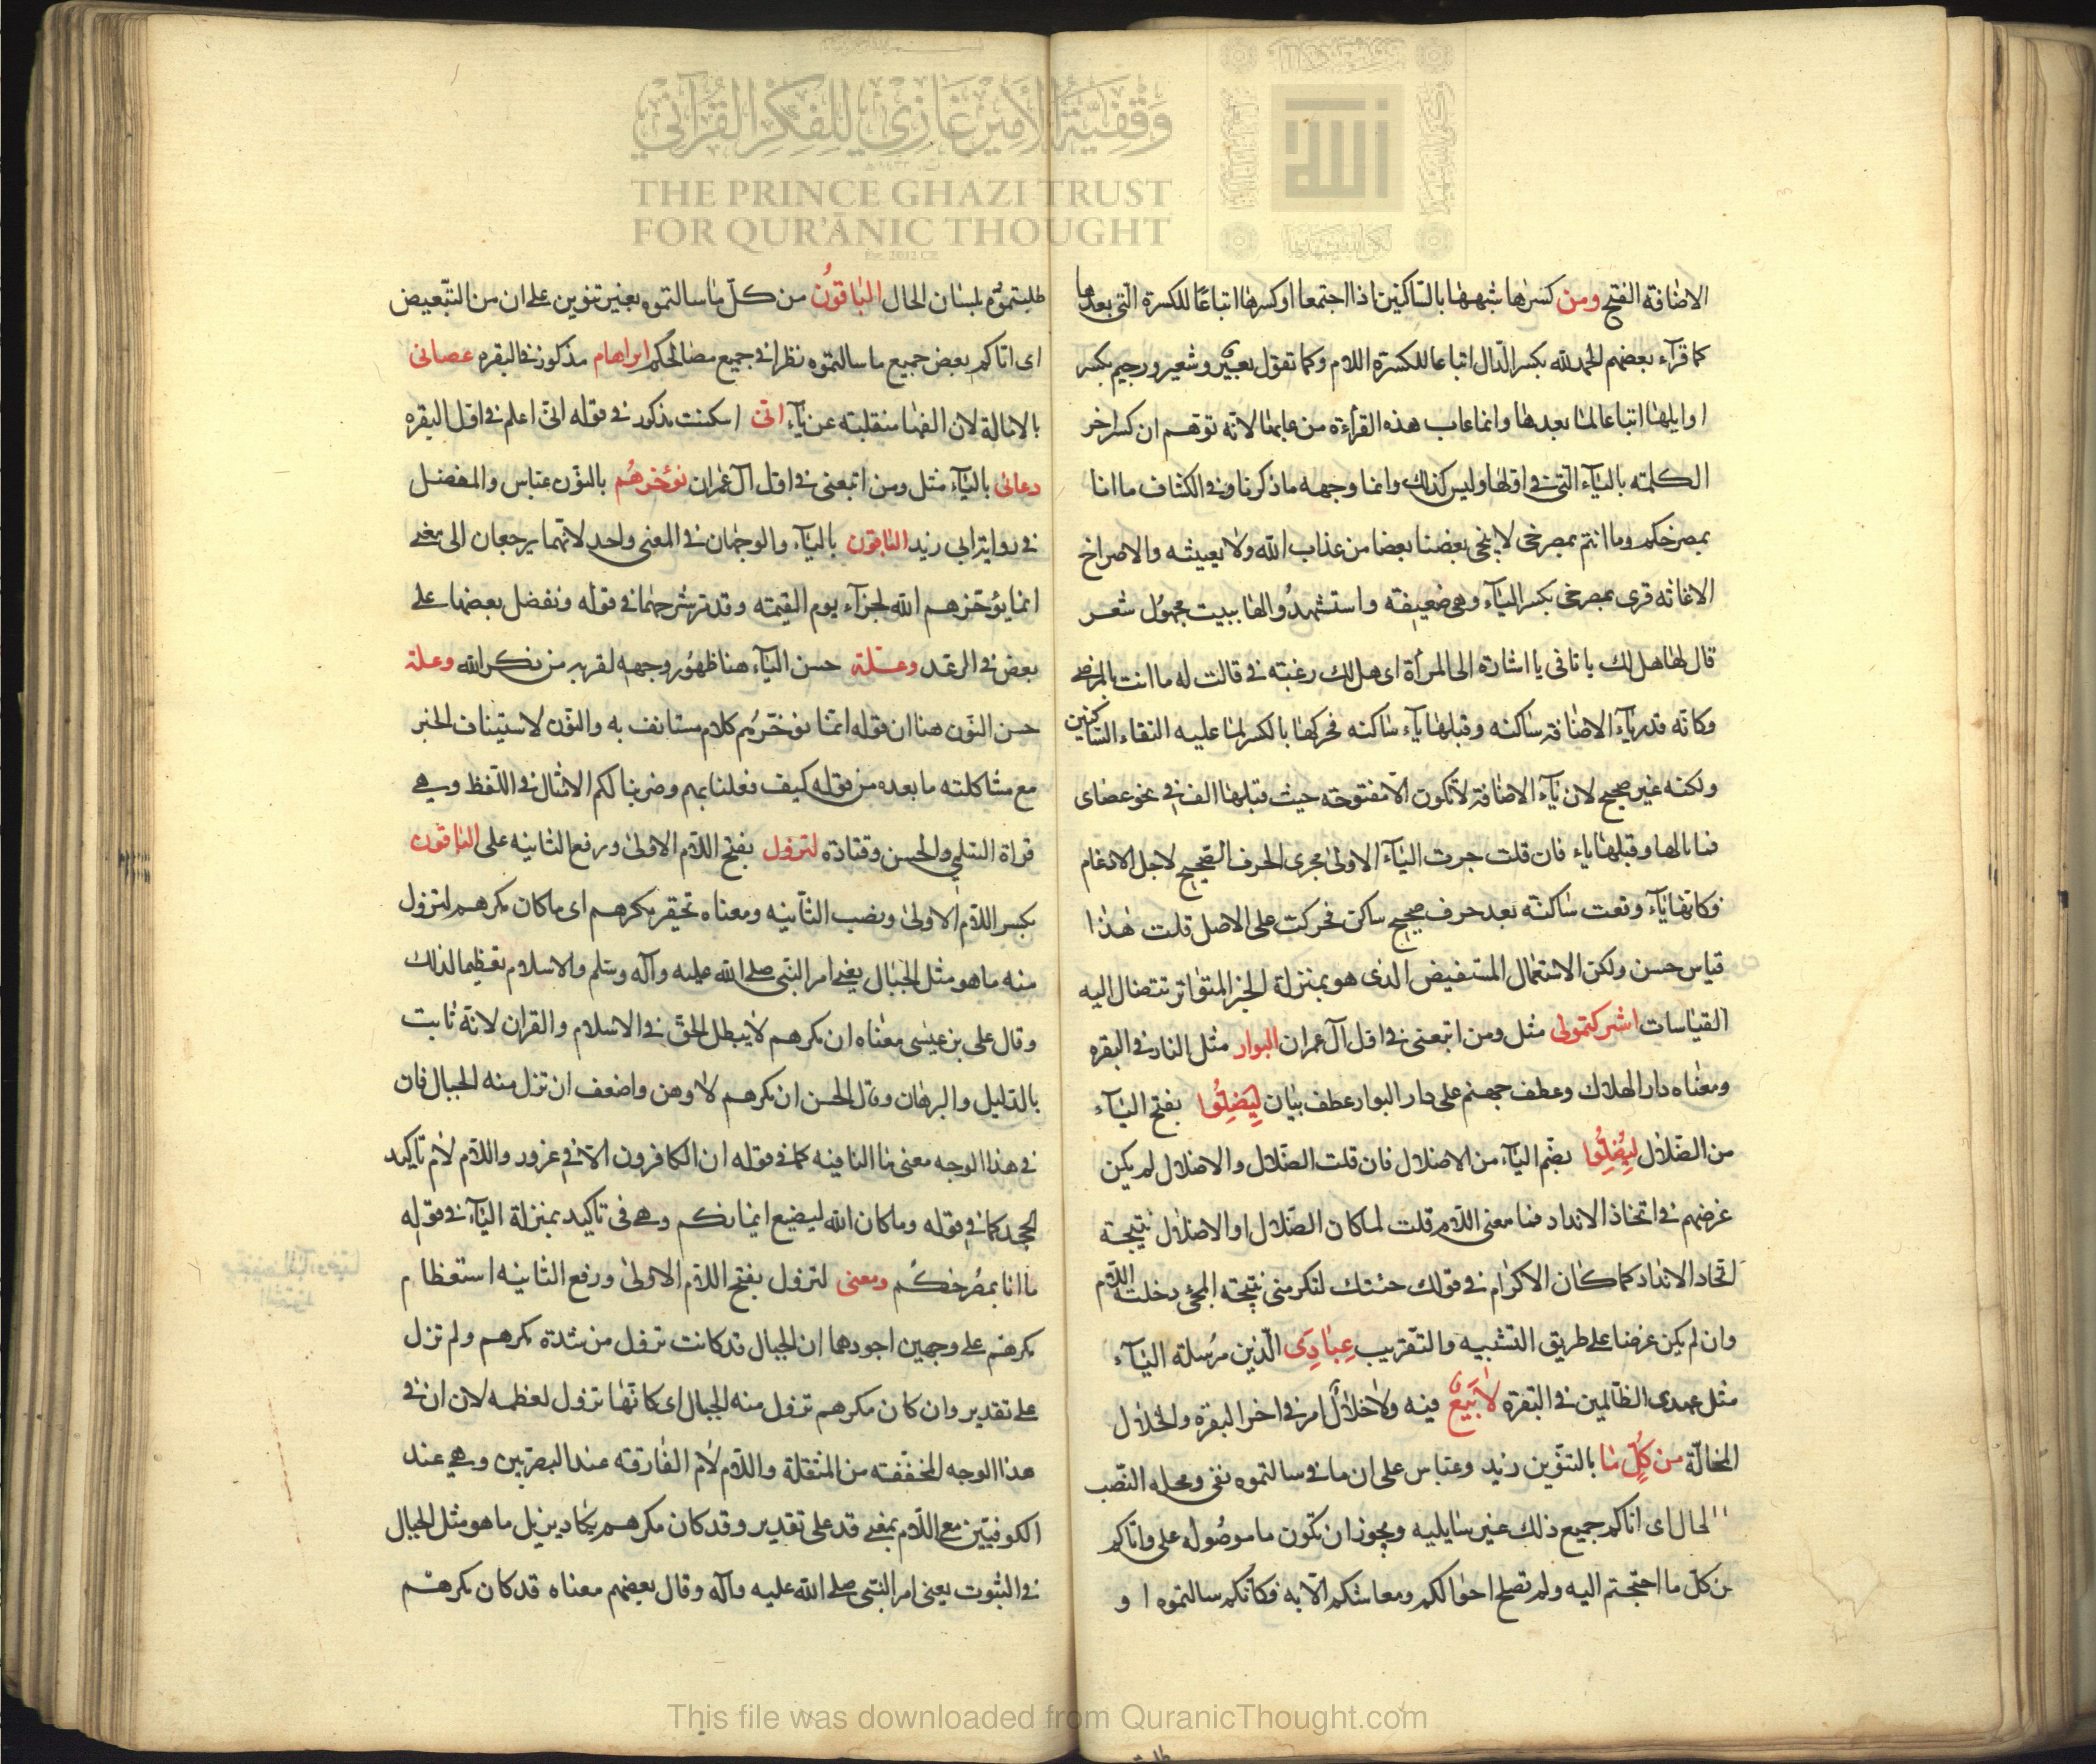 وقفية الأمير غازي للفكر القرآني
THE PRINCE GHAZI TRUST
FOR QUR'ĀNIC THOUGHT
Est. 2012 CE
الله
الاضافة الفتح ومن كسرها شبهها بالساكنين اذا اجتمعا او كسرها اتباعًا للكسرة الّتى بعدها
كما قرآء بعضهم الحمد لله بكسر الدّال اتباعا للكسرة اللام وكما تقول بعيرٌ وشعير ورجيم بكسر
اوايلها اتباعا لما بعدها وانما عاب هذه القرأءة من عابها لانّه توّهم ان كسر اخر
الكلمته بالياء الّتى فى اولها وليس كذلك وانما وجهه ما ذكرنا وفى الكشاف ما انا
بمصرخكم وما انتم بمصرخى لا ينجى بعضنا بعضا من عذاب الله ولا يعيثه والاصراخ
الاغاثه قرى بمصرخى بكسر اليآء وهى ضعيفته واستشهدُوا لها ببيت مجهُول شعر
قال لها هل لك يا تا فى يا اشارة الى المرأة اى هل لك رغبته فى قالت له ما انت بالمرضى
وكانّه قدر يآء الاضافة ساكنه وقبلها يآء ساكنه فحركها بالكسر لما عليه التقاء السّاكنين
ولكنه غير صحيح لان يآء الاضافة لا تكون الّا مفتوحته حيث قبلها الف فى نحو عصاى
فما بالها وقبلها ياء فان قلت جرت اليآء الاولى مجرى الحرف الصّحيح لاجل الادغام
فكانّها يآء وقعت ساكنّه بعد حرف صحيح ساكن فحركت على الاصل قلت هٰذا
قياس حسن ولكن الاستعمال المستفيض الذى هو بمنزلة الخبر المتواتر تتضال اليه
القياسات اشركتمونى مثل ومن اتبعنى فى اول آل عمران البوار مثل النار فى البقره
ومعناه دار الهلاك وعطف جهنم على دار البوار عطف بيان لِيَضِلُوا بفتح اليآء
من الضّلال لِيُضِلُوا بضّم اليآء من الاضلال فان قلت الضّلال والاضلال لم يكن
غرضهم فى اتخاذ الانداد فما معنى اللّام قلت لما كان الضّلال او الاضلال نتيجة
اتخاد الانداد كما كان الاكرام فى قولك جئتك لتكرمنى نتيجته المجئ دخلت اللّام
وان لم يكن غرضا على طريق التّشبيه والتّقريب عِبَادِىَ الّذين مرُسلة اليآء
مثل عهدى الظّالمين فى البقره لا بَيعٌ فيه ولا خلالٌ امر فى اخر البقره والخلال
المخالّة من كُلٍّ ما بالتنوّين زيد وعباس على ان ما فى سالتموه نفى ومحله النّصب
الحال اى اتاكم جميع ذلك غير سايليه ويجوز ان تكون ما موصُوله على واتاكم
من كلّ ما احتّجتم اليه ولم تصلح احوالكم ومعاشكم الّا به فكانكم سالتموه او
طلبتموّه بلسان الحال البَاقوُنُ من كلّ ما سالتموه بغير تنوين على ان من للتّبعيض
اى اتاكم بعض جميع ما سالتموّه نظرا فى جميع مصالحكم ابراهام مذكور فى البقره عصانى
بالامالة لان الفها منقلبته عن يآء انّى اسكنت مذكور فى قوله انّى اعلم فى اول البقره
دعائى باليآء مثل ومن اتبعنى فى اول آل عمران نوُخّرهُم بالنوّن عبّاس والمفضل
فى رواية ابى زيد الباقون باليآء والوجهان فى المعنى واحد لانّهما يرجعان الى معنى
انما يؤخّرهم الله لجزآء يوم القيمته وقد مرّ شرحهما فى قوله ونفضل بعضها على
بعض فى الرعد وعـّلة حسن اليآء هنا ظهُور وجهه لقربه من ذكر الله وعلة
حسن النوّن هنا ان قوله انّما نوخّرهُم كلام مستانف به والنوّن لاستيناف الخبر
مع مشاكلته ما بعده من قوله كيف فعلنا بهم وضربنا لكم الامثال فى اللّفظ وهى
قراة السّلمى والحسن وقتادة لتزول بفتح اللّام الاولى ورفع الثانيه على الباقون
بكسر اللّام الاولى ونصب الثّانيه ومعناه تحقير مكرهم اى ما كان مكرهم لتزول
منه ما هو مثل الجبال يعنى امر النّبى صلى الله عليه وآله وسّلم والاسلام تعظيما لذلك
وقال على بن عيسٰى معناه ان مكرهم لا يبطل الحقّ فى الاسلام والقران لانّه ثابت
بالدّليل والبرهان وقال الحسن ان مكرهم لا وهن واضعف ان تزل منه الجبال فان
فى هذا الوجه معنى ما النافيه كما فى قوله ان الكافرون الّا فى غرور واللّام لام تاكيد
لجحد كما فى قوله وما كان الله ليضيع ايمانكم وهى فى تاكيد بمنزلة اليآء فى قوله
ما انا بمصُرخكُم ومعنى لتزول بفتح اللام الاولى ورفع الثانيه استعظام
مكرهم على وجهين اجودهما ان الجبال قد كانت تزول من شدة مكرهم ولم تزل
على تقدير وان كان مكرهم تزول منه الجبال اى كانّها تزول لعظمه لان ان فى
هذا الوجه المخففته من المثقلة واللّام لام الفارقه عند البصريين وهى عند
الكوفيّين مع اللّام بمعنى قد على تقدير وقد كان مكرهم يكاد يزيل ما هو مثل الجبال
فى الثبوت يعنى امر النّبى صلى الله عليه وآله وقال بعضهم معناه قد كان مكرهم
This file was downloaded from QuranicThought.com